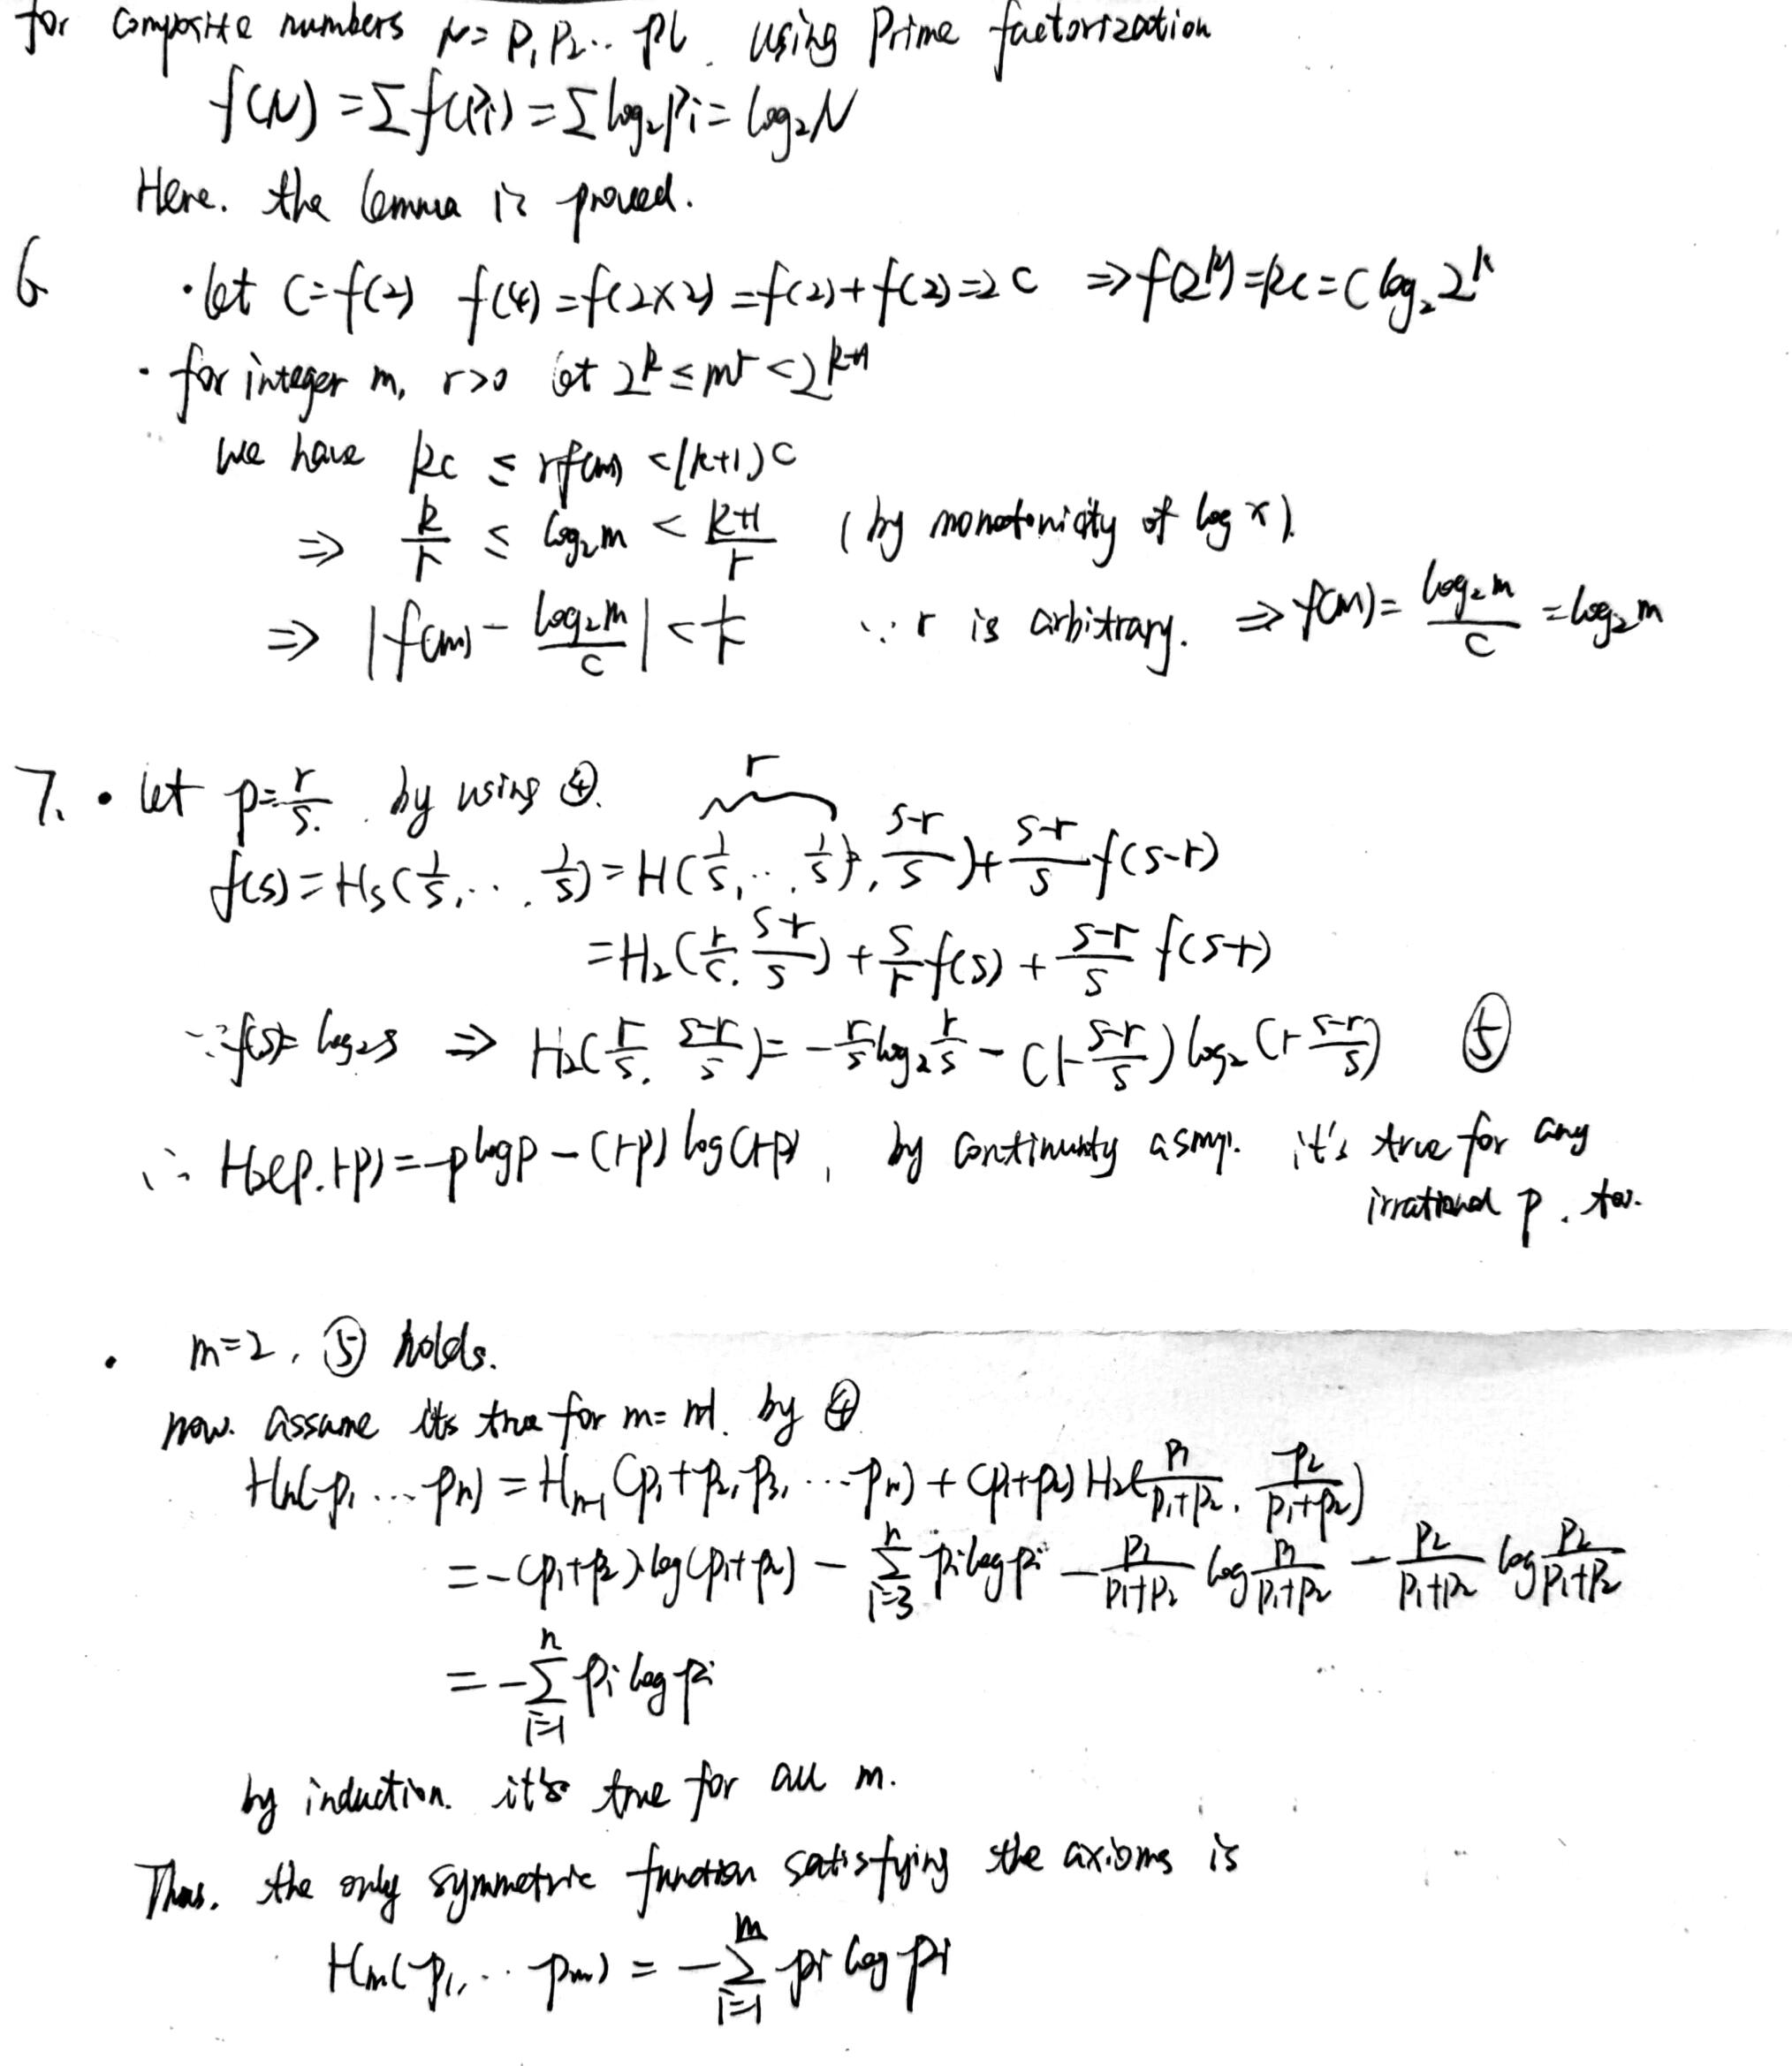 for composite numbers N = P₁P₂... Pl. using Prime factorization
f(N) = Σ f(Pi) = Σ log₂Pi = log₂N
Here. the lemma is proved.
6 · let C = f(2) f(4) = f(2×2) = f(2)+f(2) = 2C ⇒ f(2^k) = kc = C log₂2^k
· for integer m, r>0 let 2^k ≤ m^r < 2^{k+1}
we have kc ≤ rf(m) < (k+1)c
⇒ k/r ≤ log₂m < (k+1)/r (by monotonicity of log x).
⇒ |f(m) - (log₂m)/c| < 1/r ∵ r is arbitrary. ⇒ f(m) = (log₂m)/c = log₂m
7. · let p = r/s. by using ④.
r
f(s) = Hs(1/s, ... 1/s) = H(1/s, ... 1/s, (s-r)/s) + (s-r)/s f(s-r)
= H₂(r/s, (s-r)/s) + s/r f(s) + (s-r)/s f(s-r)
∵ f(s) = log₂s ⇒ H₂(r/s, (s-r)/s) = -r/s log₂ r/s - (1-(s-r)/s) log₂(1-(s-r)/s) ⑤
∴ H₂(p, 1-p) = -p log p - (1-p) log(1-p), by continuity asmp. it's true for any
irrational p. too.
· m=2, ⑤ holds.
now. assume its true for m= by ④
Hn(p₁ ... pn) = H_{n-1}(p₁+p₂, p₃, ... pn) + (p₁+p₂) H₂(p₁/(p₁+p₂), p₂/(p₁+p₂))
= -(p₁+p₂) log(p₁+p₂) - Σ_{i=3}^{n} pi log pi - p₁/(p₁+p₂) log p₁/(p₁+p₂) - p₂/(p₁+p₂) log p₂/(p₁+p₂)
= -Σ_{i=1}^{n} pi log pi
by induction. it's true for all m.
Thus. the only symmetric function satisfying the axioms is
Hm(p₁, ... pm) = -Σ_{i=1}^{m} pi log pi